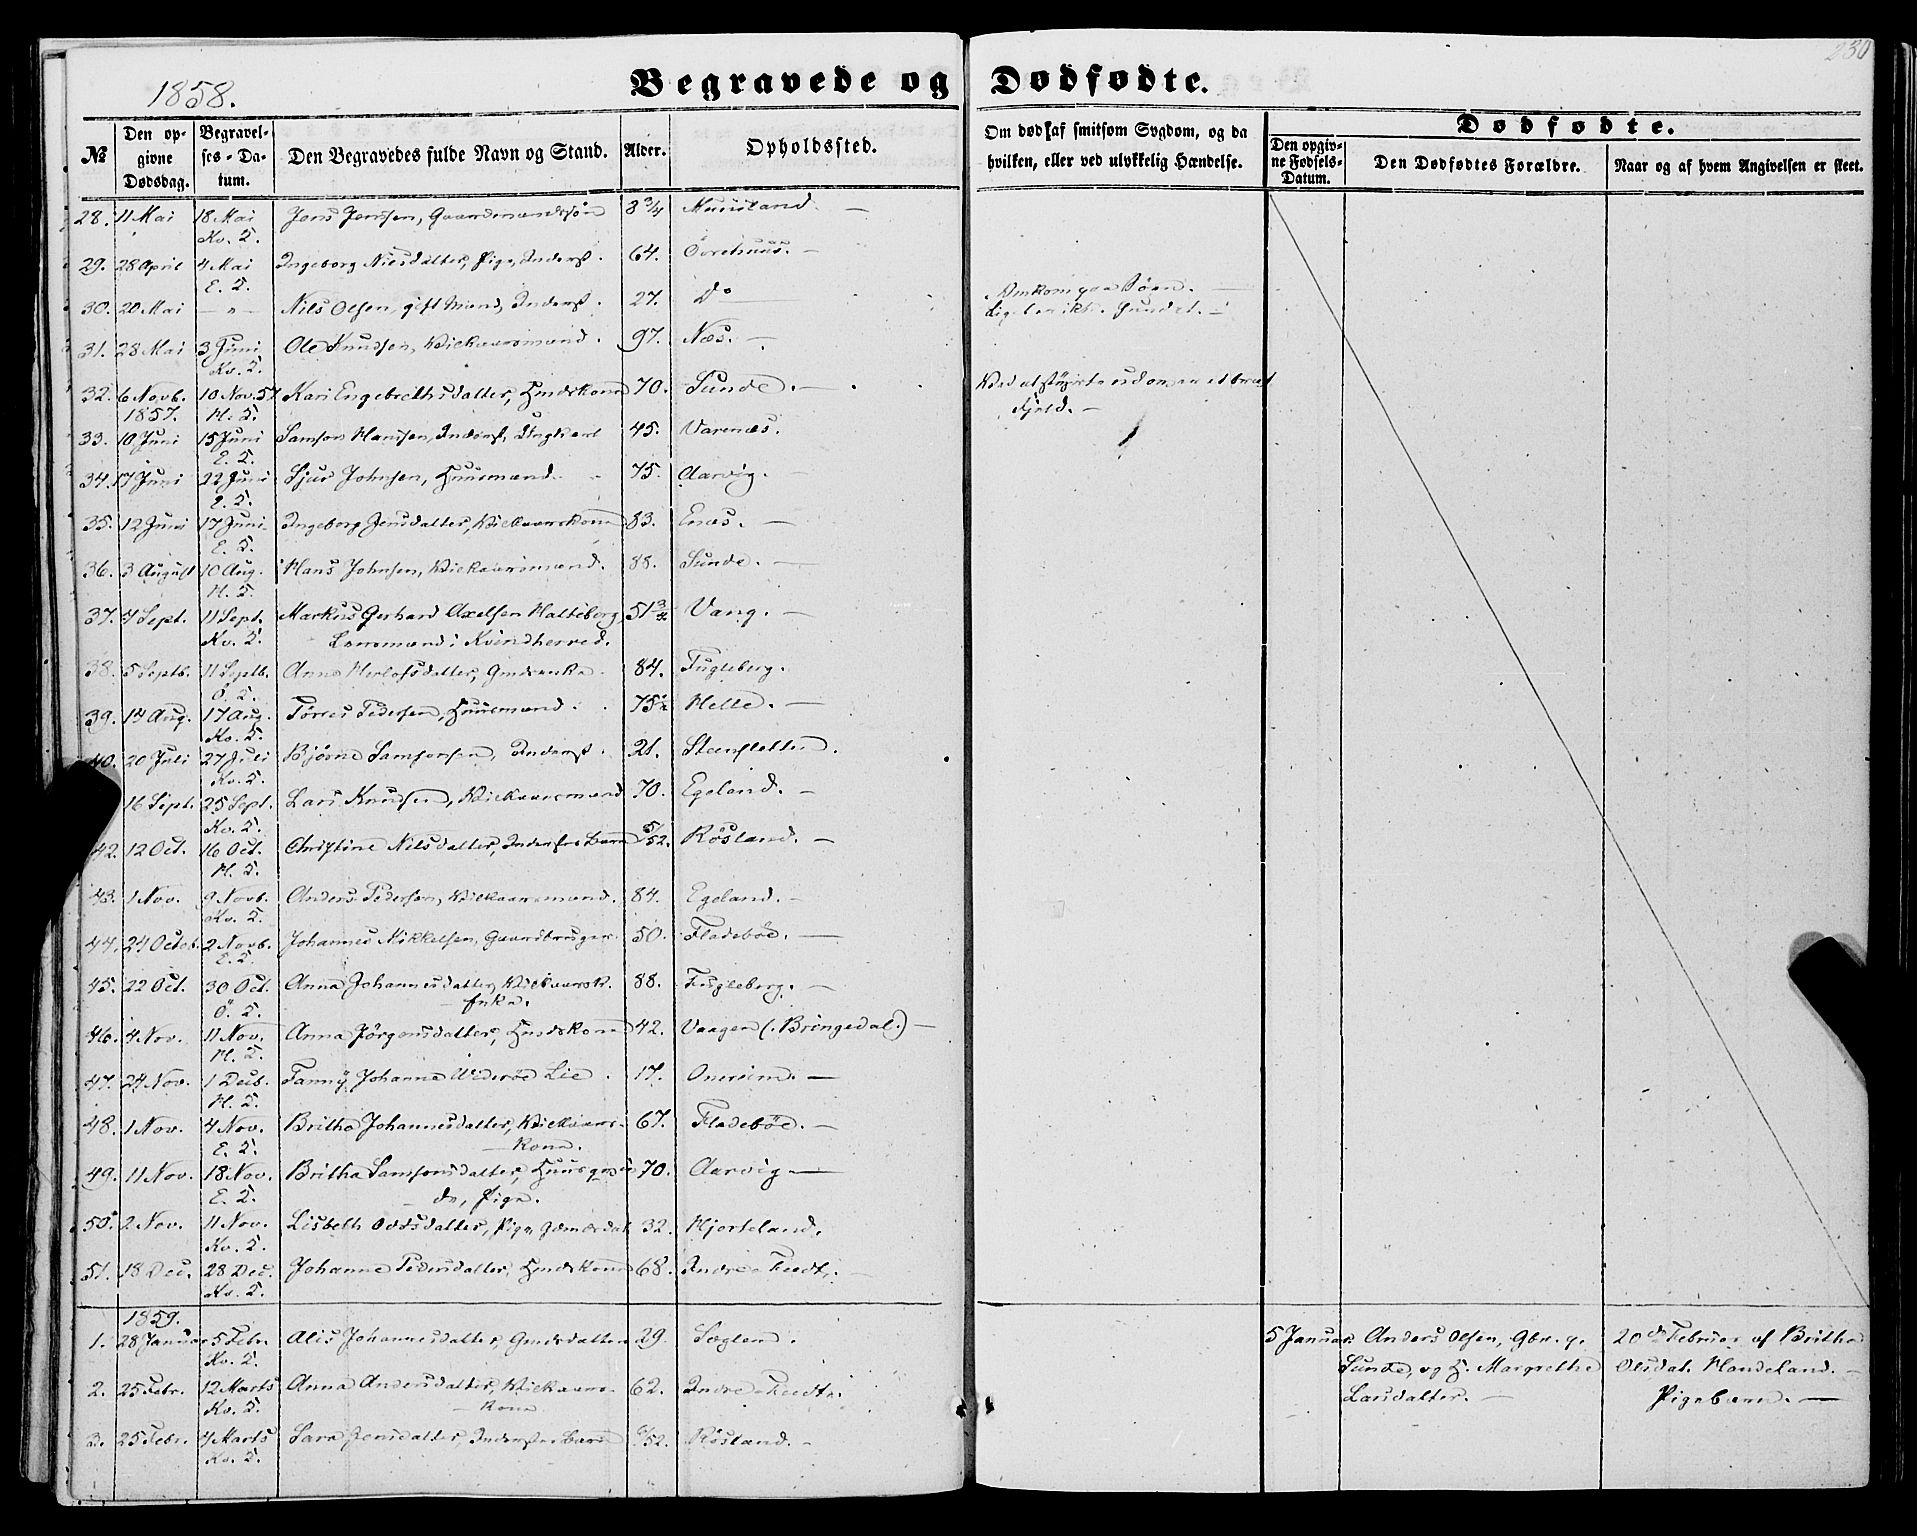 230
1858.
Begravede og Dødfødte.
№
Den opgivne Dødsdag.
Begravelses-Datum.
Den Begravedes fulde Navn og Stand.
Alder.
Opholdssted.
Om død af smitsom Sygdom, og da hvilken, eller ved ulykkelig Hændelse.
Dødfødte.
Den opgivne Fødsels-Datum.
Den Dødfødtes Forældre.
Naar og af hvem Angivelsen er skeet.
28. 11 Mai 18 Mai Jens Jensen, Gaardmandssøn 8 3/4 Muusland. —
Kv. K.
29. 28 April 4 Mai Ingeborg Nilsdatter, Pige, Inderst. 64. —
E. K.
30. 20 Mai — " — Nils Olsen, gift Mand, Inderst. 27. Do Omkom paa Søen. —
Liget er ikke fundet. —
31. 28 Mai 3 Juni Ole Knudsen, Kielkaarsmand. 97. Næs. —
Kv. K.
32. 6 Novb. 10 Nov. 57 Kari Engebrethsdatter, Huuskone 70. Sunde. — Ved at styrte ud over et bræt
1857. H. K. Fjeld. —
33. 10 Juni 15 Juni Samson Hansen, Inderst, Ungkarl 45. Varenæs.
E. K.
34. 17 Juni 22 Juni Sjur Johnsen, Huusmand. 75. Aarvig. —
E. K.
35. 12 Juni 17 Juni Ingeborg Jensdatter, 83. Enæs. —
E. K.
36. 3 August 10 Aug. Hans Johnsen, 88. Sunde. —
H. K.
37. 4 Sept. 11 Sept. Markus Gerhard Axelsen Halteborg, 51 3/4 Vang. —
Kv. K. Lensmand i Kvindherred.
38. 5 Septb. 11 Septb. Anna Herlofsdatter, 84. Fugleberg.
Ö. K.
39. 14 Aug. 17 Aug. Tørres Pedersen, Huusmand. 75 1/2 Helle. —
Kv. K.
40. 20 Juli 27 Juli Bjørne Samsonsen, Inderst. 21.
Kv. K.
16 Sept. 25 Sept. Lars Knudsen, 70. Egeland. —
Kv. K.
42. 12 Oct. 16 Oct. Christine Nilsdatter, Inderstes Barn 5/52. Røsland. —
H. K.
43. 1 Nov. 9 Novb. Anders Pedersen, 84. Egeland. —
Kv. K.
44. 24 Octob. 2 Novb. Johannes Mikkelsen, Gaardbruger. 50. Fladebøe. —
E. K.
45. 22 Oct. 30 Oct. Anna Johannesdatter, 88. Fugleberg. —
Ö. K. — Enke.
46. 4 Nov. 11 Nov. Anna Jörgensdatter, 42. Vaagen (: Bringedal :) —
H. K.
47. 24 Nov. 1 Decb. Fanny Johanne Widerøe Lie. 17. Onereim. —
H. K.
48. 1 Nov. 4 Nov. Britha Johannesdatter, 67. Fladebøe. —
E. K. — Kone.
49. 11 Nov. 18 Nov. Britha Samsonsdatter, 70. Aarvig —
E. K. de, Pige.
50. 2 Nov. 11 Nov. Lisbeth Oddsdatter, Pige, 32. Hjorteland.
Kv. K.
51. 18 Dec. 28 Dec. Johanne Pedersdatter, 68. Indre-Teedt. —
Kv. K.
1859.
1. 28 Januar 5 Febr. Alis Johannesdatter, 29. 5 Januar Anders Olsen, Gbr. p. 20de Februar af Britha
Kv. K. Sunde, og H. Margrethe Olsdat. Handeland. —
2. 25 Febr. 12 Marts Anna Andersdatter, 62. Indre-Teedt. Larsdatter. — Pigebarn. —
Kv. K. — Kone
3. 25 Febr. 4 Marts Sara Jensdatter, Inderstes Barn 6/52. Røsland. —
Kv. K.